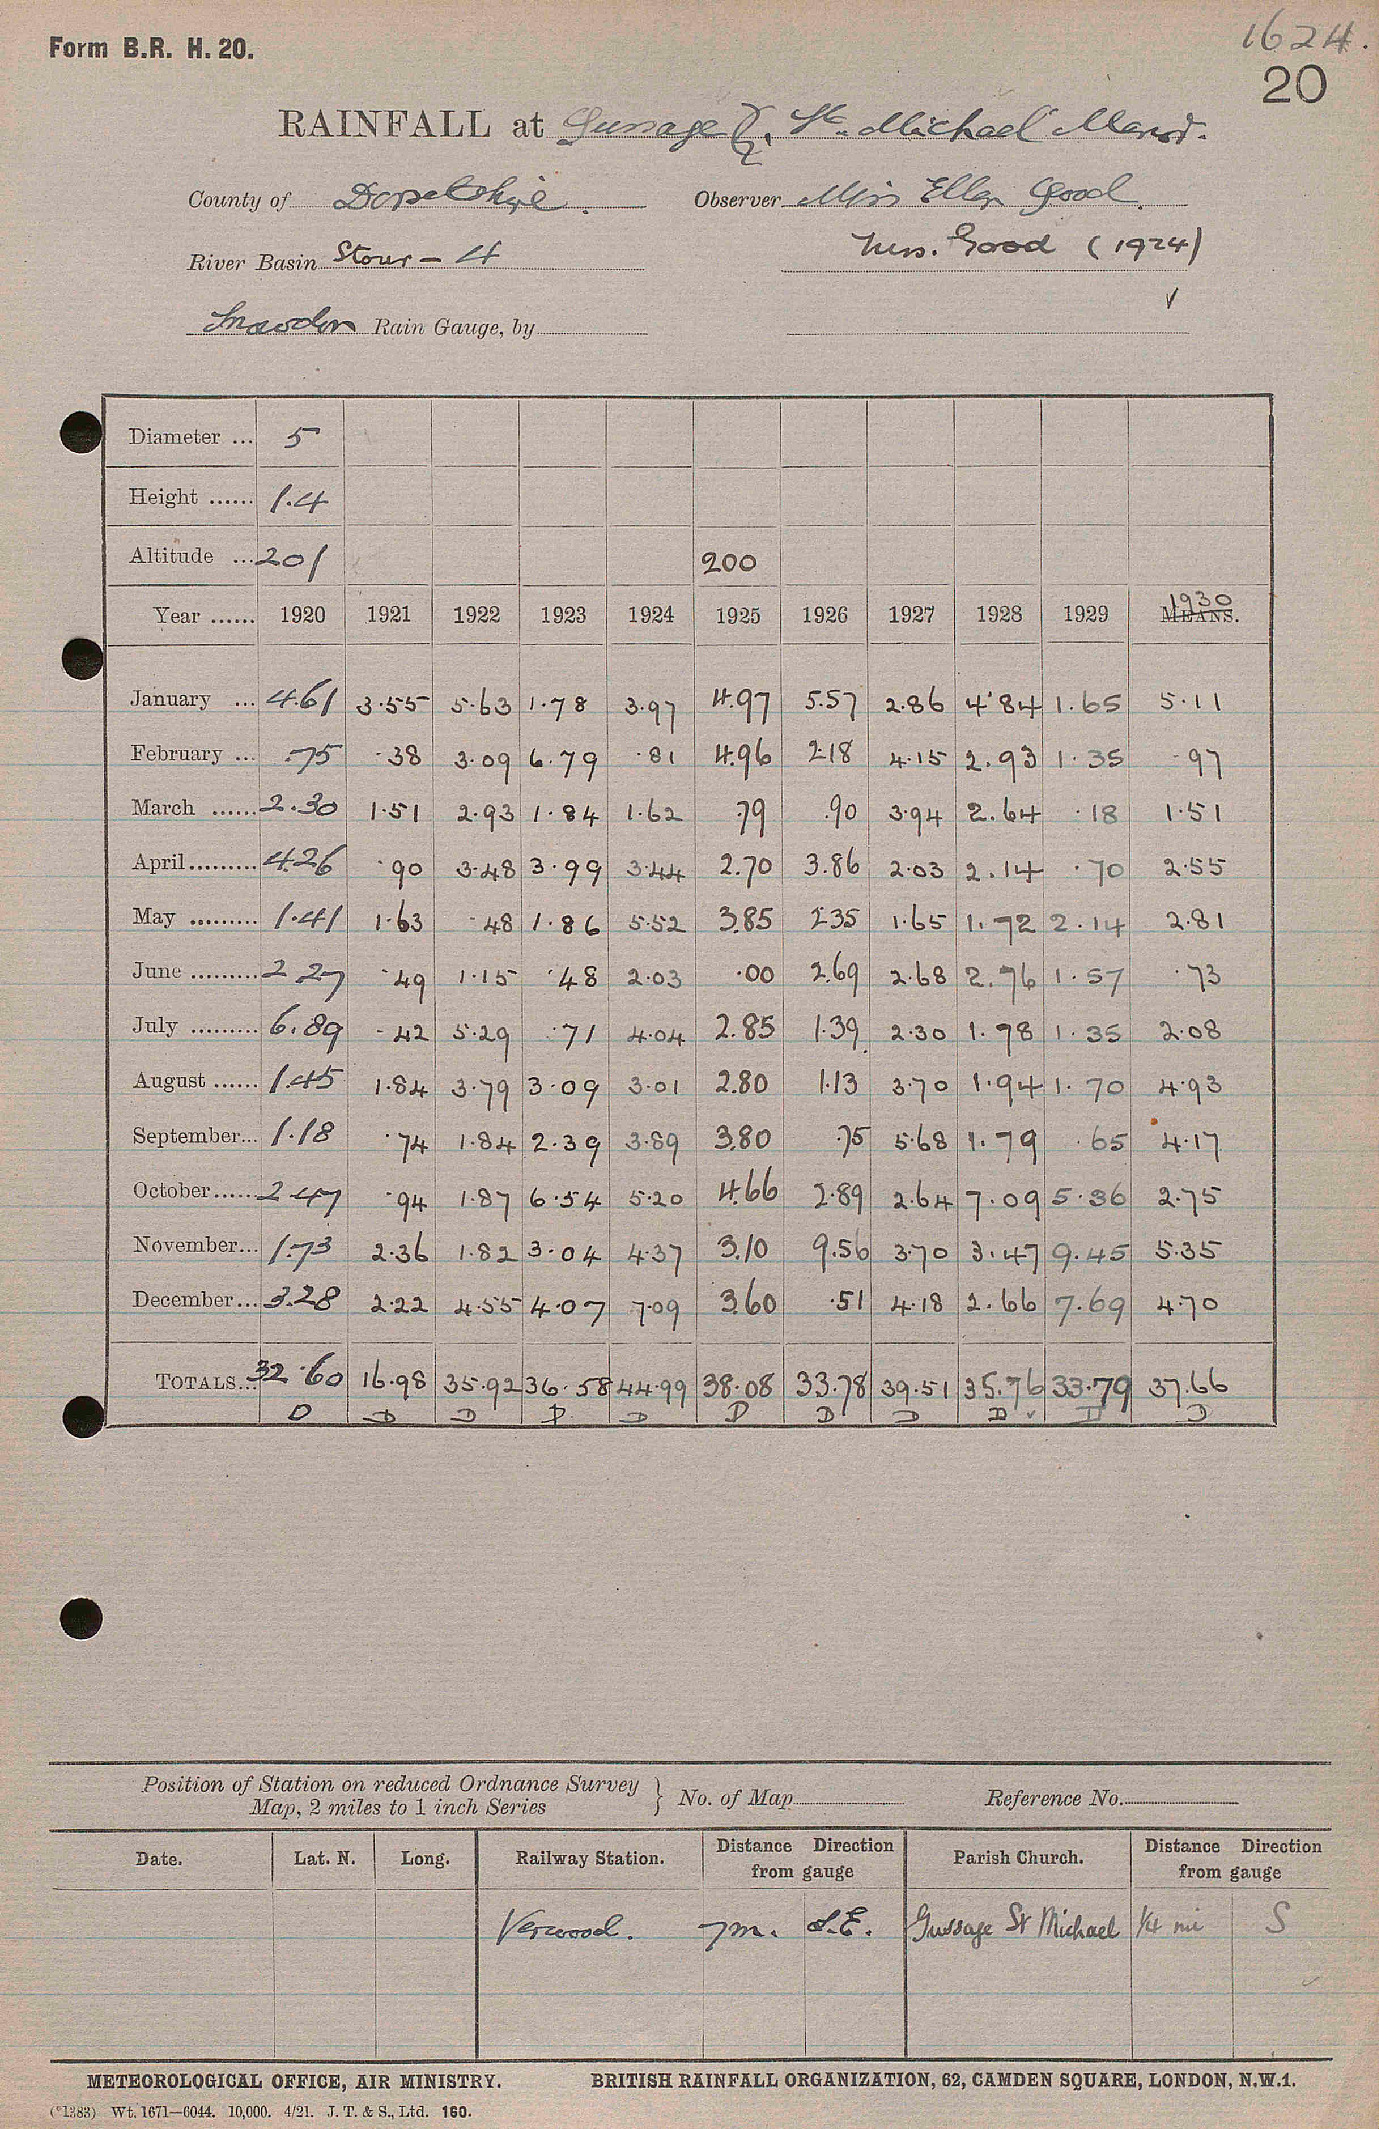 Form B.R. H. 20.
1624.
20
RAINFALL at Gussage St. Michael Manor.
County of Dorsetshire. Observer Miss Ellen Good.
River Basin Stour - 4 Mrs. Good (1924)
Snowdon Rain Gauge, by ✓
Diameter ... 5
Height ...... 1.4
Altitude ... 201 200
Year ...... 1920 1921 1922 1923 1924 1925 1926 1927 1928 1929 MEANS. 1930
January ... 4.61 3.55 5.63 1.78 3.97 4.97 5.57 2.86 4.84 1.65 5.11
February ... .75 .38 3.09 6.79 .81 4.96 2.18 4.15 2.93 1.35 .97
March ...... 2.30 1.51 2.93 1.84 1.62 .79 .90 3.94 2.64 .18 1.51
April ......... 4.26 .90 3.48 3.99 3.44 2.70 3.86 2.03 2.14 .70 2.55
May ......... 1.41 1.63 .48 1.86 5.52 3.85 2.35 1.65 1.72 2.14 2.81
June ......... 2.27 .49 1.15 .48 2.03 .00 2.69 2.68 2.76 1.57 .73
July ......... 6.89 .42 5.29 .71 4.04 2.85 1.39 2.30 1.78 1.35 2.08
August ...... 1.45 1.84 3.79 3.09 3.01 2.80 1.13 3.70 1.94 1.70 4.93
September... 1.18 .74 1.84 2.39 3.89 3.80 .75 5.68 1.79 .65 4.17
October...... 2.47 .94 1.87 6.54 5.20 4.66 2.89 2.64 7.09 5.36 2.75
November... 1.73 2.36 1.82 3.04 4.37 3.10 9.56 3.70 3.47 9.45 5.35
December... 3.28 2.22 4.55 4.07 7.09 3.60 .51 4.18 2.66 7.69 4.70
TOTALS... 32.60 16.98 35.92 36.58 44.99 38.08 33.78 39.51 35.76 33.79 37.66
D D D D D D D D D ✓ D D
Position of Station on reduced Ordnance Survey
Map, 2 miles to 1 inch Series } No. of Map Reference No.
Date. Lat. N. Long. Railway Station. Distance Direction from gauge Parish Church. Distance Direction from gauge
Verwood. 7m. S.E. Gussage St Michael 1/4 mi S
METEOROLOGICAL OFFICE, AIR MINISTRY. BRITISH RAINFALL ORGANIZATION, 62, CAMDEN SQUARE, LONDON, N.W.1.
(*1383) Wt. 1671—6044. 10,000. 4/21. J. T. & S., Ltd. 160.